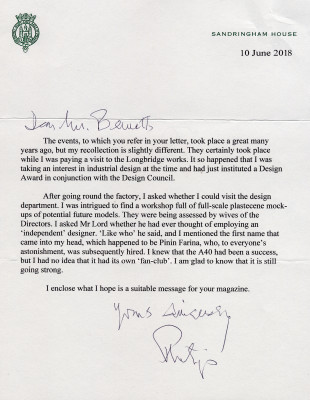 SANDRINGHAM HOUSE
10 June 2018
Dear Mr. Bennetts
The events, to which you refer in your letter, took place a great many
years ago, but my recollection is slightly different. They certainly took place
while I was paying a visit to the Longbridge works. It so happened that I was
taking an interest in industrial design at the time and had just instituted a Design
Award in conjunction with the Design Council.
After going round the factory, I asked whether I could visit the design
department. I was intrigued to find a workshop full of full-scale plastecene mock-
ups of potential future models. They were being assessed by wives of the
Directors. I asked Mr Lord whether he had ever thought of employing an
'independent' designer. 'Like who' he said, and I mentioned the first name that
came into my head, which happened to be Pinin Farina, who, to everyone's
astonishment, was subsequently hired. I knew that the A40 had been a success,
but I had no idea that it had its own 'fan-club'. I am glad to know that it is still
going strong.
I enclose what I hope is a suitable message for your magazine.
Yours sincerely
Philip